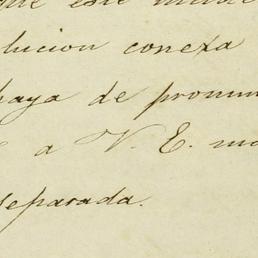 que este
lucion conexa
haya de pronun
a V. E. mu
separada.